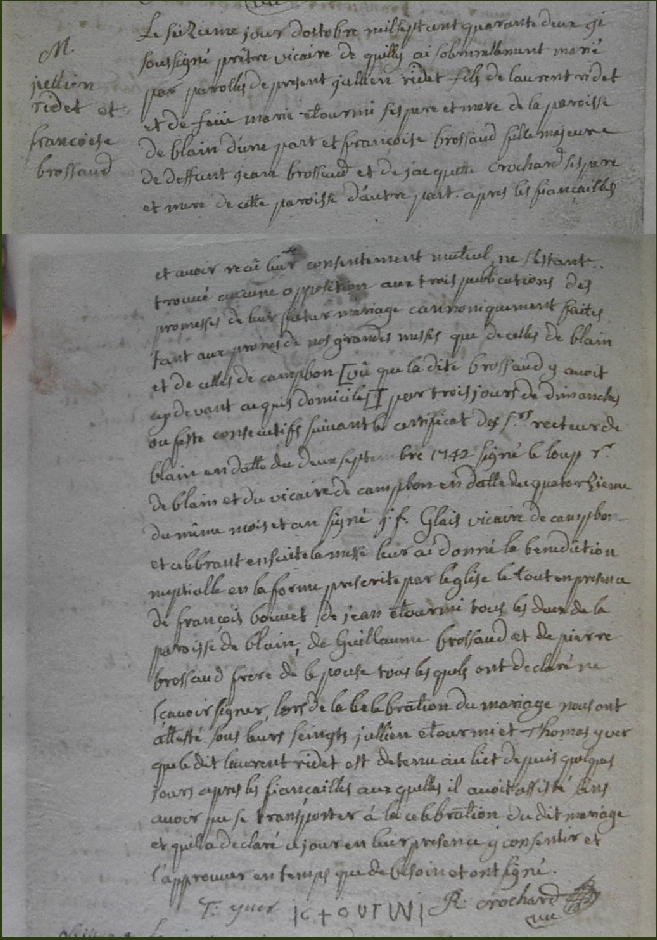 M.
jullien
ridet et
francoise
brossaud
Le seizieme jour doctobre mil sept cent quarante deux je
soussigné prêtre vicaire de quilly ai solemnellement marié
par parolles de present jullien ridet fils de laurent ridet
et de feüe marie etourmi ses pere et mere de la paroisse
de blain d'une part et francoise brossaud fille majeure
de deffunt jean brossaud et de jacquette crochard ses pere
et mere de cette paroisse d'autre part. apres les fiançailles
et avoir recû leur consentement mutuel, ne s'etant
trouvé aucune opposition aux trois publications des
promesses de leur futur mariage cannoniquement faites
tant aux prones de nos grandes messes que de celles de blain
et de celles de campbon [vû que la dite brossaud y avoit
cy devant acquis domicile] par trois jours de dimanches
ou feste consecutifs suivant le certificat des srs recteur de
blain en datte du deux septembre 1742 signé le loup r.
de blain et du vicaire de campbon en datte du quatorzieme
du même mois et an signé j. f. Glais vicaire de campbon
et celebrant ensuite la messe leur ai donné la benediction
nuptialle en la forme prescrite par l'eglise le tout en presence
de françois bouvet, de jean etourmi tous les deux de la
paroisse de blain, de Guillaume brossaud et de pierre
brossaud frere de lepouse tous lesquels ont declaré ne
sçavoir signer, lors de la celebration du mariage nous ont
attesté sous leurs seings jullien etourmi et Thomas yver
que ledit laurent ridet est detenu au lict depuis quelques
jours apres les fiançailles auxquelles il avoit assisté sans
avoir pu se transporter à la celebration du dit mariage
et qu'il a declaré ce jour en leur presence y consentir et
l'approuver en temps que de besoin et ont signé.
T. yver R. crochard